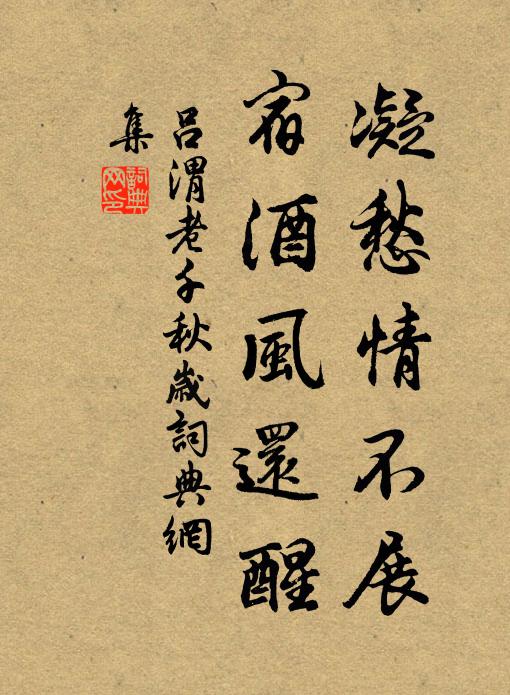 凝愁情不展
宿酒風還醒
吕渭老千秋歲詞典網
集
詞典
网印